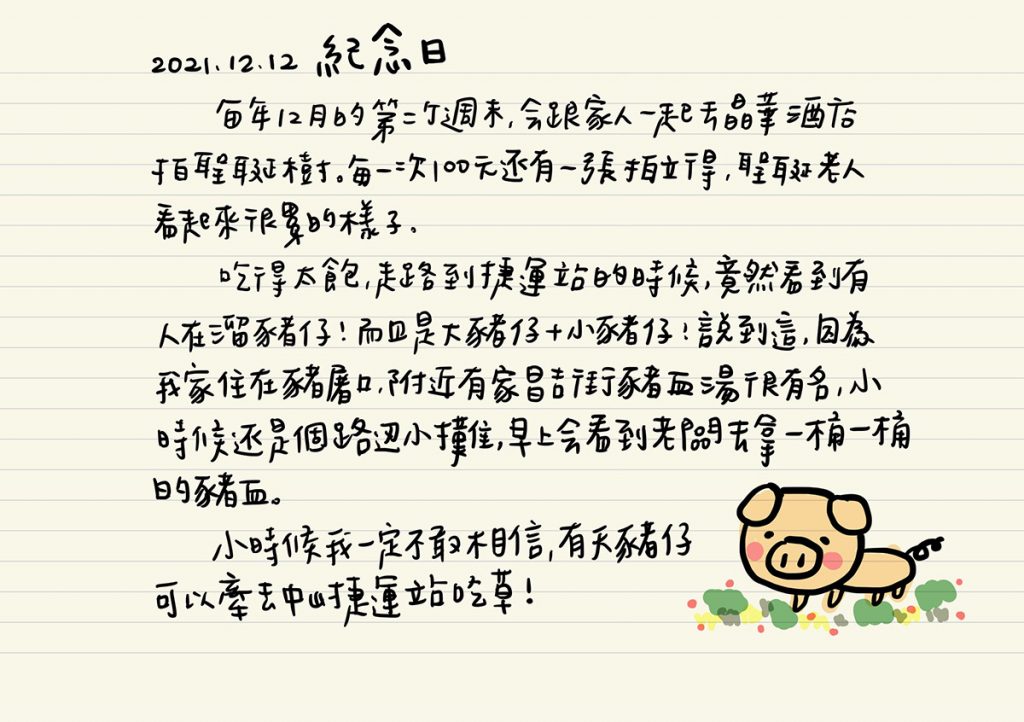 2021.12.12 紀念日
每年12月的第二个週末,会跟家人一起去晶華酒店
拍聖誕樹。每一次100元还有一張拍立得,聖誕老人
看起來很累的樣子。
吃得太飽,走路到捷運站的時候,竟然看到有
人在溜豬仔!而且是大豬仔+小豬仔!說到這,因為
我家住在豬屠口,附近有家昌吉街豬血湯很有名,小
時候还是個路边小攤,早上会看到老闆去拿一桶一桶
的豬血。
小時候我一定不敢相信,有天豬仔
可以牽去中山捷運站吃草!